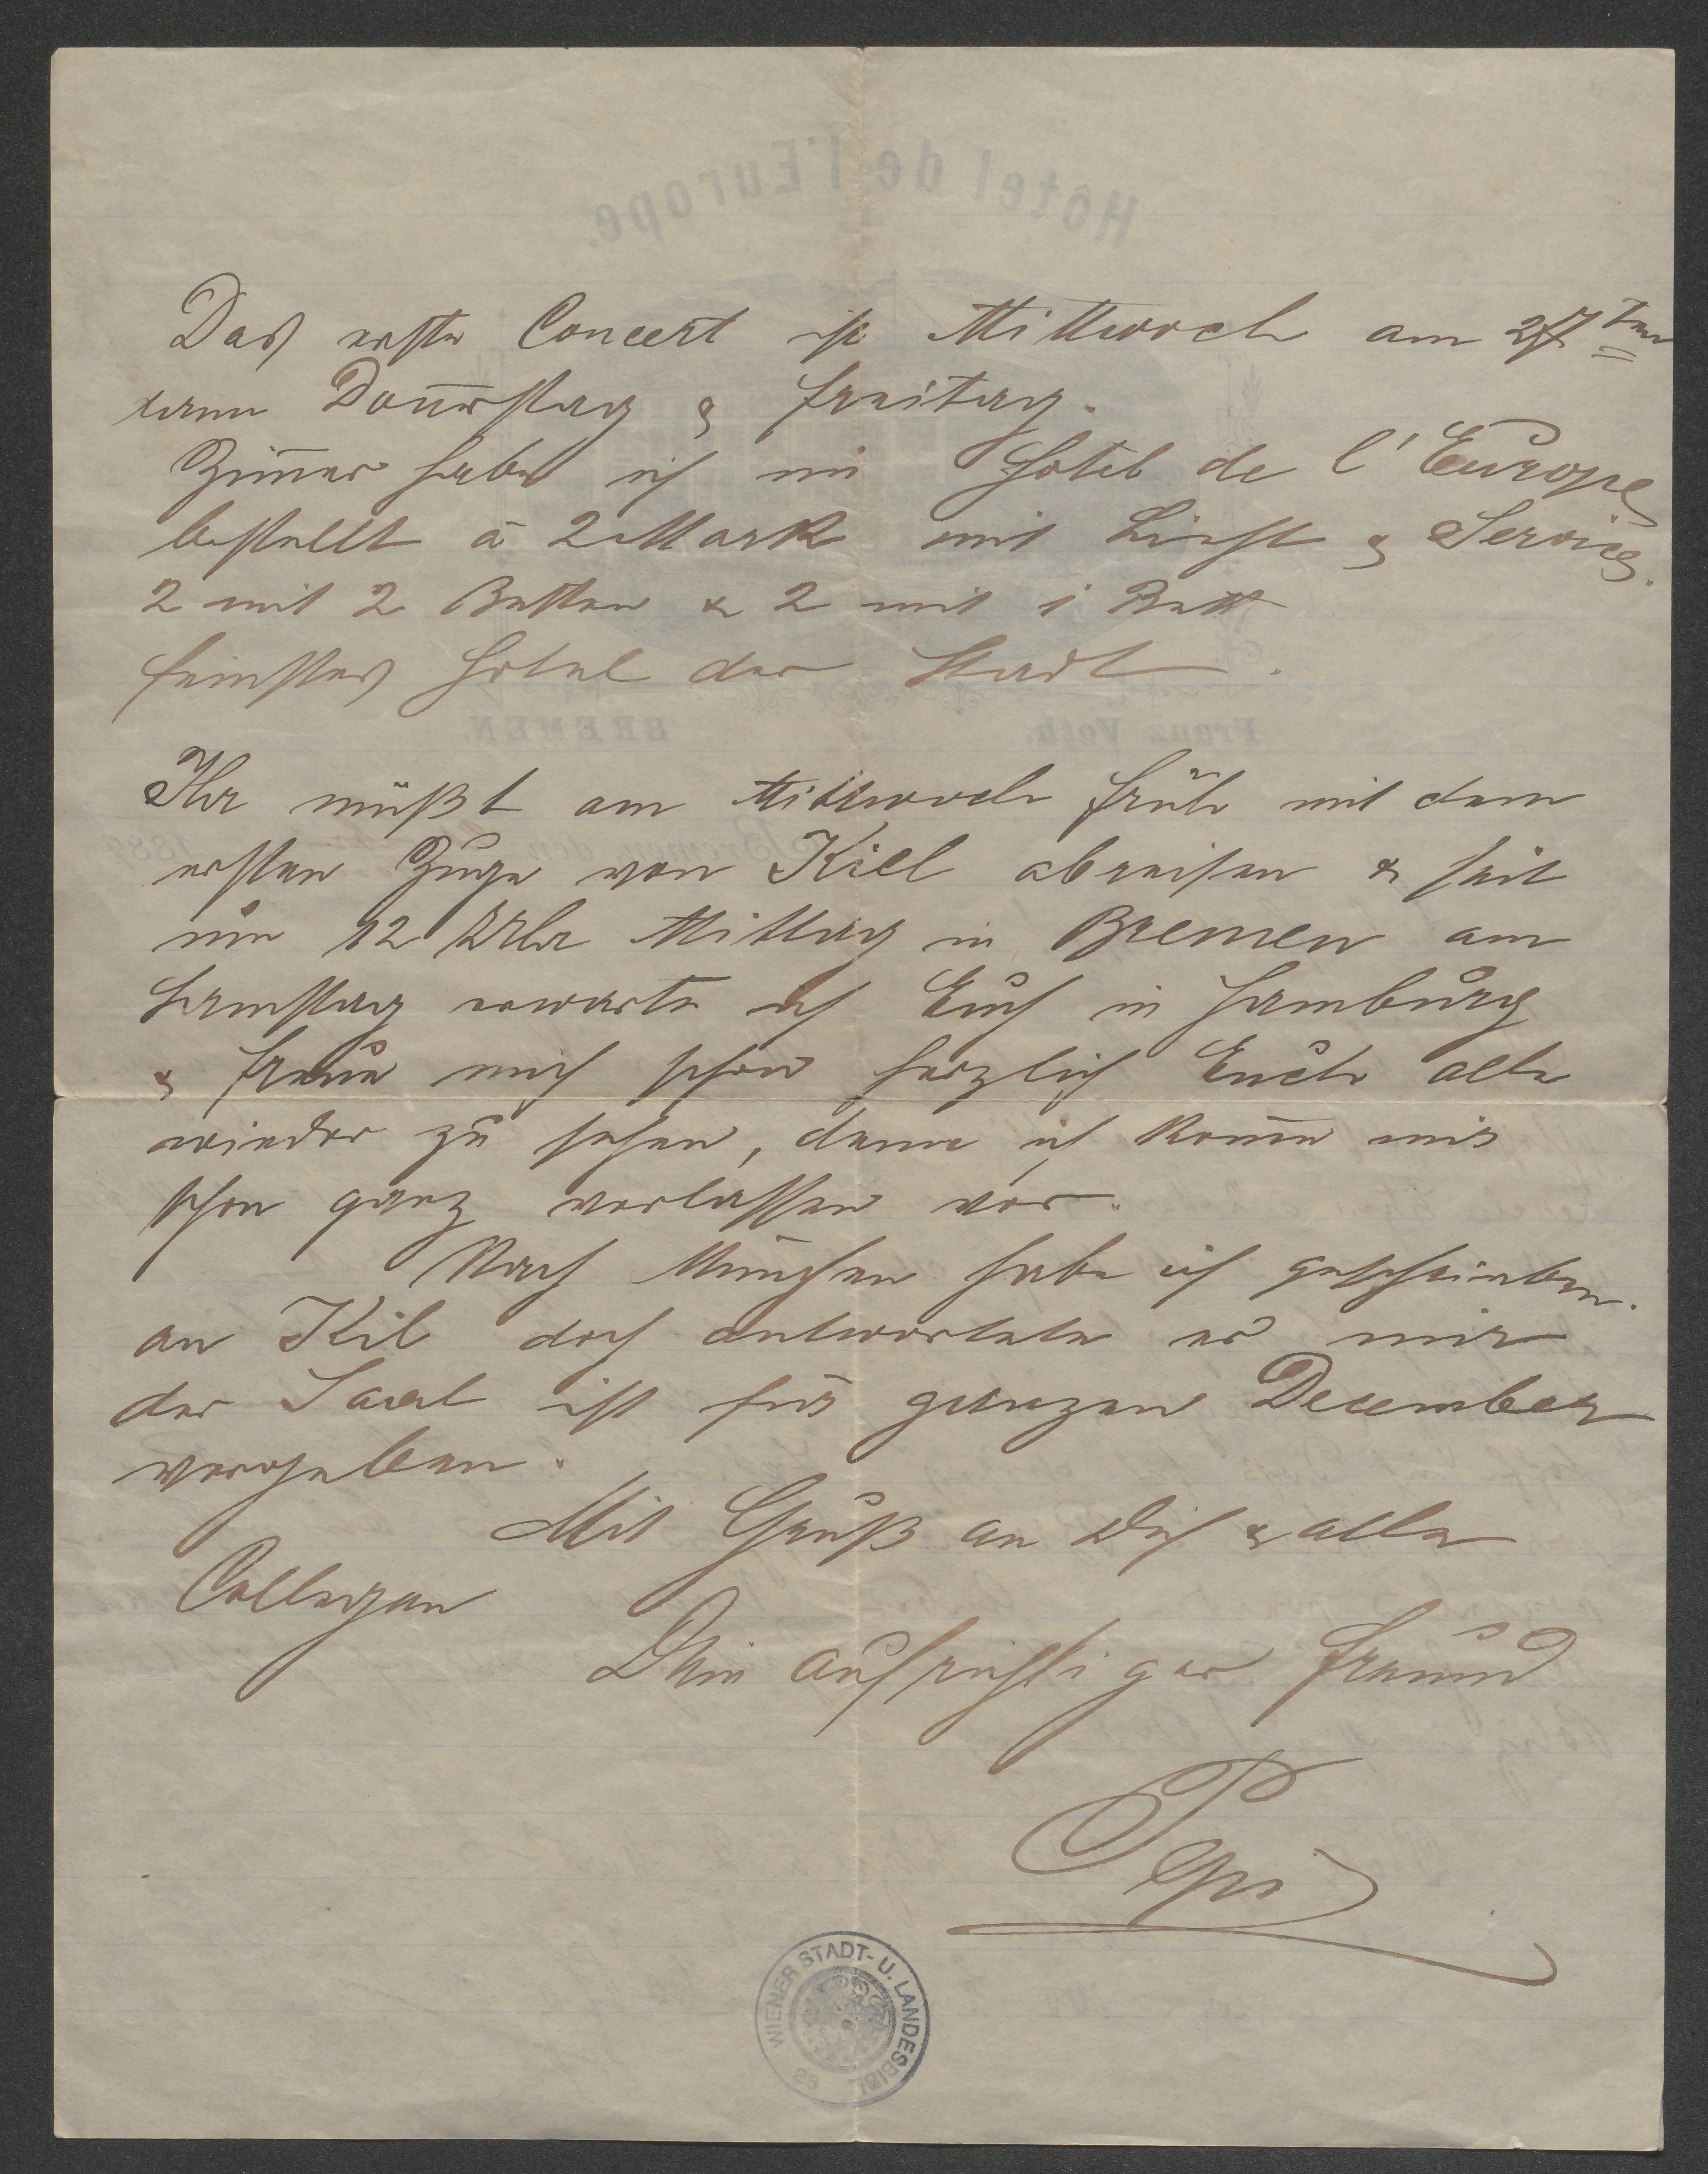 Das erste Concert ist Mittwoch am 27ten
dann Doñerstag & Freitag.
Zim̄er habe ich im Hotel de l'Europe
bestellt à 2 Mark mit Licht & Service.
2 mit 2 Betten & 2 mit 1 Bett
feinstes Hotel der Stadt.
Ihr müßt am Mittwoch früh mit dem
ersten Zuge von Kiel abreisen & seit
um 12 Uhr Mittag in Bremen am
Samstag erwarte ich Euch in Hamburg
& freue mich schon herzlich Euch alle
wieder zu sehen, denn ich kom̄e mir
schon ganz verlassen vor.
Nach München habe ich geschrieben.
an Kil doch antwortete er mir
der Saal ist für ganzen December
vergeben.
Mit Gruß an Dich & alle
Collegen
Dein aufrichtiger Freund
Pepi
WIENER STADT- U. LANDESBIBL.
Hôtel de l'Europe.
Franz Voth. BREMEN.
Bremen, den 188